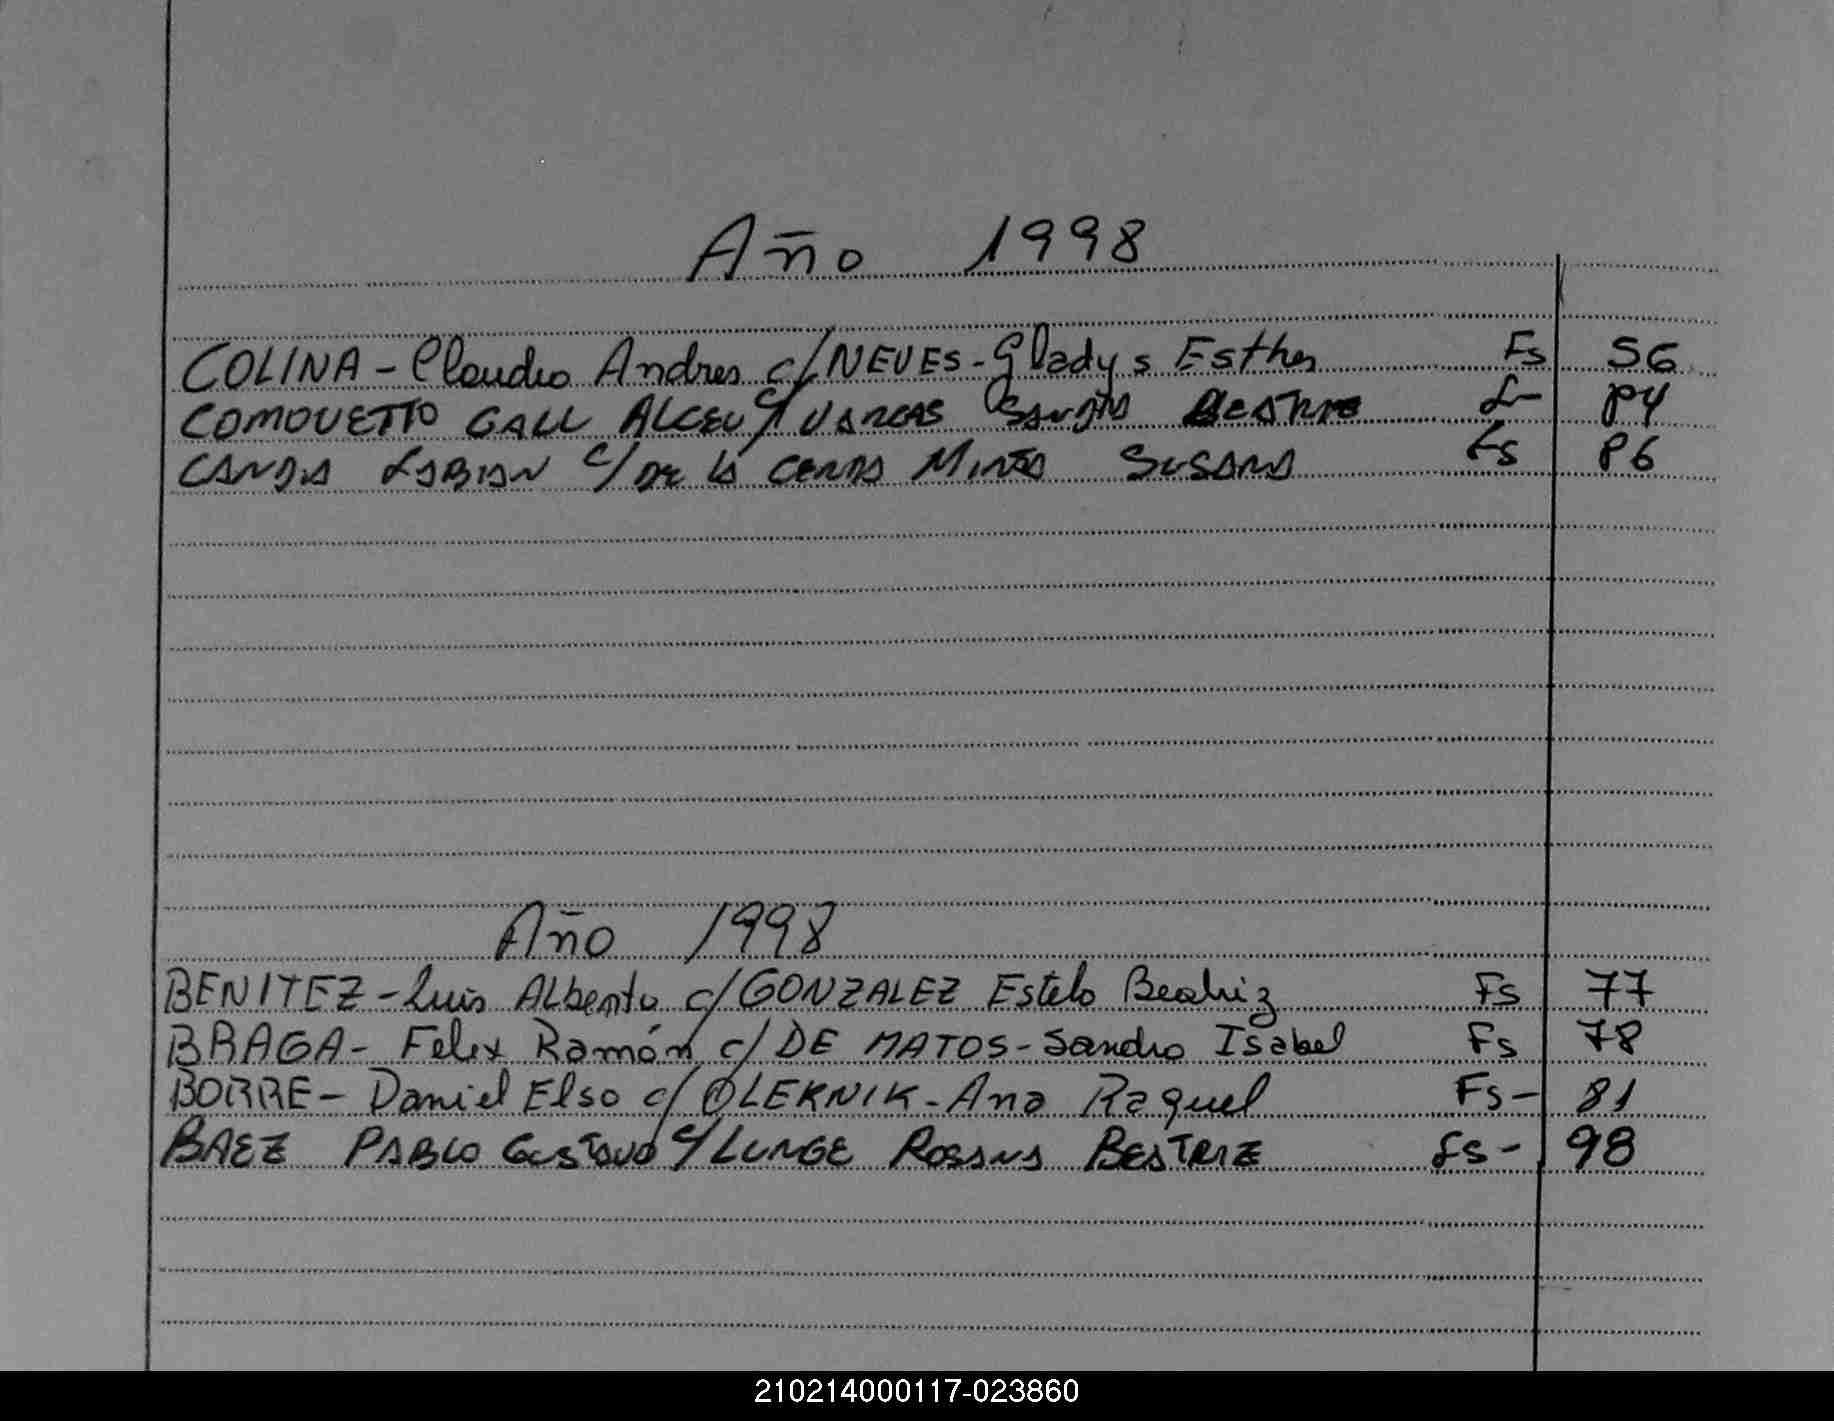 Año 1998
COLINA - Claudio Andres c/ NEVES - Gladys Esther Fs 56
COMOVETTO GALL ALCEU c/ VARGAS SANDRA BEATRIZ F- 84
CANDIA FABIAN c/ DE LA CERDA MIRTA SUSANA Fs 86
Año 1998
BENITEZ - Luis Alberto c/ GONZALEZ Estela Beatriz Fs 77
BRAGA - Felix Ramón c/ DE MATOS - Sandra Isabel Fs 78
BORRE - Daniel Elso c/ OLERNIK - Ana Raquel Fs - 81
BAEZ PABLO GUSTAVO c/ LUNGE ROSANA BEATRIZ Fs - 98
210214000117-023860